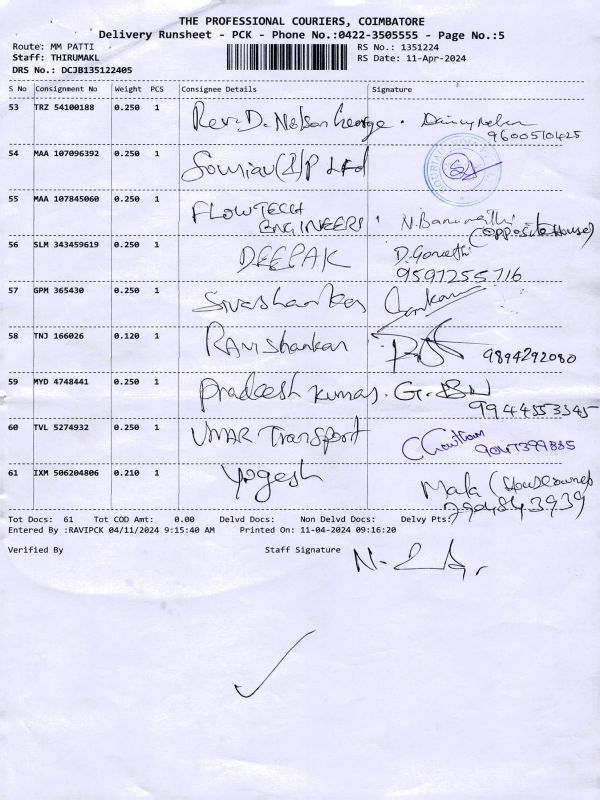 THE PROFESSIONAL COURIERS, COIMBATORE
Delivery Runsheet - PCK - Phone No.:0422-3505555 - Page No.:5
Route: MM PATTI
RS No.: 1351224
Staff: THIRUMAKL
RS Date: 11-Apr-2024
DRS No.: DCJB135122405
S No Consignment No Weight PCS Consignee Details Signature
53 TRZ 54100188 0.250 1 Rev. D. Nelson George.
9600510425
54 MAA 107096392 0.250 1 (I) P Ltd
55 MAA 107845060 0.250 1 FLOWTECH
ENGINEERS
(opposite House)
56 SLM 343459619 0.250 1 DEEPAK D. Gomathi
9597255716
57 GPM 365430 0.250 1 Sivashankar
58 TNJ 166026 0.120 1 Ravishankar 9894292080
59 MYD 4748441 0.250 1 Pradeesh kumar.
9944553345
60 TVL 5274932 0.250 1 UMAR Transport
9047399885
61 IXM 506204806 0.210 1 Yogesh Mala (Houseowner)
7904843939
Tot Docs: 61 Tot COD Amt: 0.00 Delvd Docs: Non Delvd Docs: Delvy Pts:
Entered By :RAVIPCK 04/11/2024 9:15:40 AM Printed On: 11-04-2024 09:16:20
Verified By Staff Signature